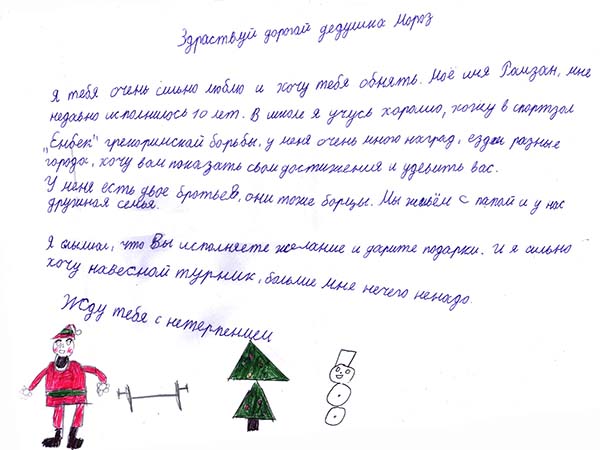 Здраствуй дорогай дедушка Мороз
Я тебя очень сильно люблю и хочу тебя обнять. Моё имя Рамзан, мне
недавно исполнилось 10 лет. В школе я учусь хорошо, хожу в спортзал
"Енбек" грекоринской борьбы, у меня очень много наград, ездил разные
города, хочу вам показать свои достижения и удевить вас.
У мене есть двое братьев, они тоже борцы. Мы живём с папой и у нас
дружная семья.
Я слышал, что Вы исполняете желание и дарите подарки. И я сильно
хочу навесной турник, больше мне нечего ненадо.
Жду тебя с нетерпением